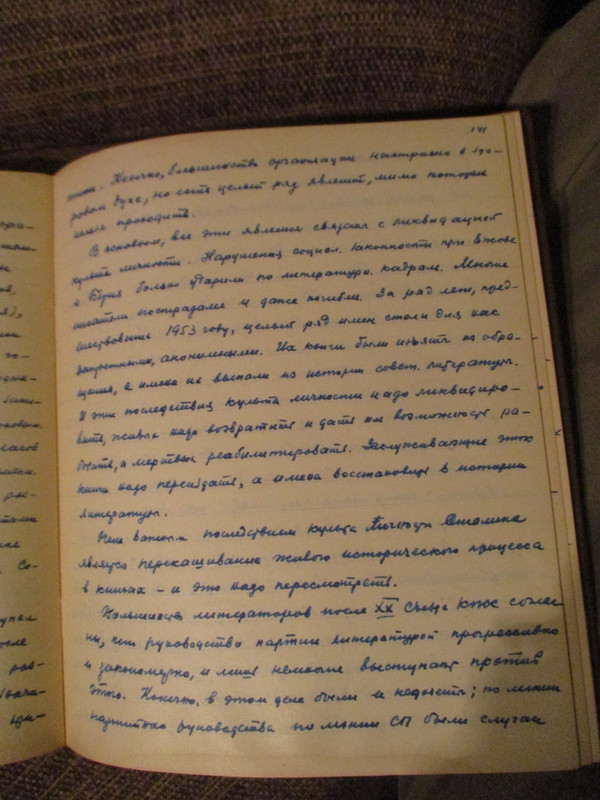 141
этом. Конечно, большинство организации настроено в здо-
ровом духе, но есть целый ряд явлений, мимо которых
нельзя проходить.
В основном, все эти явления связаны с ликвидацией
культа личности. Нарушения социал. законности при Ежове
и Берия больно ударили по литератур. кадрам. Многие
писатели пострадали и даже погибли. За ряд лет, пред-
шествовавших 1953 году, целый ряд имен стали для нас
запретными, анонимными. Их книги были изъяты из обра-
щения, а имена их выпали из истории совет. литературы.
И эти последствия культа личности надо ликвидиро-
вать, живых надо возвратить и дать им возможность ра-
ботать, а мертвых реабилитировать. Заслуживающие этого
книги надо переиздать, а имена восстановить в истории
литературы.
Еще важным последствием культа личности Сталина
является перекашивание живого исторического процесса
в книгах – и это надо пересмотреть.
Большинство литераторов после XX съезда КПСС соглас-
ны, что руководство партии литературой прогрессивно
и закономерно, и лишь немногие выступают против
этого. Конечно, в этом деле были и недостатки; по линии
партийного руководства по линии СП были случаи